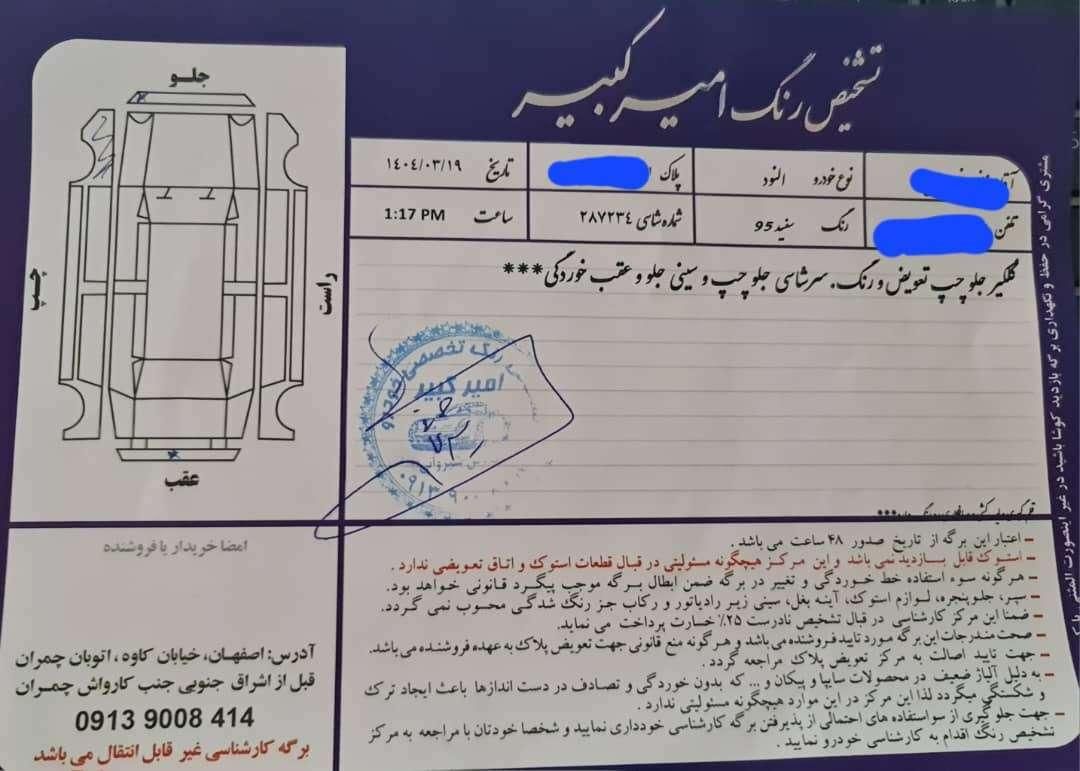 تشخیص رنگ امیر کبیر
جلو
چپ
راست
عقب
نوع خودرو النود
پلاک
تاریخ ۱۴۰۴/۰۳/۱۹
تلفن
رنگ سفید 95
شماره شاسی ۲۸۷۲۳۴
ساعت 1:17 PM
گلگیر جلو چپ تعویض و رنگ. سرشاسی جلو چپ و سینی جلو و عقب خوردگی ***
رنگ تخصصی خودرو
امیر کبیر
امضا خریدار یا فروشنده
آدرس: اصفهان، خیابان کاوه، اتوبان چمران
قبل از اشراق جنوبی جنب کارواش چمران
0913 9008 414
برگه کارشناسی غیر قابل انتقال می باشد
- اعتبار این برگه از تاریخ صدور ۴۸ ساعت می باشد.
- استوک قابل بازدید نمی باشد و این مرکز هیچگونه مسئولیتی در قبال قطعات استوک و اتاق تعویضی ندارد.
- هرگونه سوء استفاده خط خوردگی و تغییر در برگه ضمن ابطال برگه موجب پیگرد قانونی خواهد بود.
- سپر، جلوپنجره، لوازم استوک، آینه بغل، سینی زیر رادیاتور و رکاب جز رنگ شدگی محسوب نمی گردد.
- ضمنا این مرکز کارشناسی در قبال تشخیص نادرست ۲۵٪ خسارت پرداخت می نماید.
- صحت مندرجات این برگه مورد تایید فروشنده می باشد و هرگونه منع قانونی جهت تعویض پلاک به عهده فروشنده می باشد.
- جهت تایید اصالت به مرکز تعویض پلاک مراجعه گردد.
- به دلیل آلیاژ ضعیف در محصولات سایپا و پیکان و... که بدون خوردگی و تصادف در دست اندازها باعث ایجاد ترک
و شکستگی میگردد لذا این مرکز در این موارد هیچگونه مسئولیتی ندارد.
- جهت جلوگیری از سو استفاده های احتمالی از پذیرفتن برگه کارشناسی خودداری نمایید و شخصا خودتان با مراجعه به مرکز
تشخیص رنگ اقدام به کارشناسی خودرو نمایید.
مشتری گرامی در حفظ و نگهداری برگه بازدید کوشا باشید در غیر اینصورت المثنی